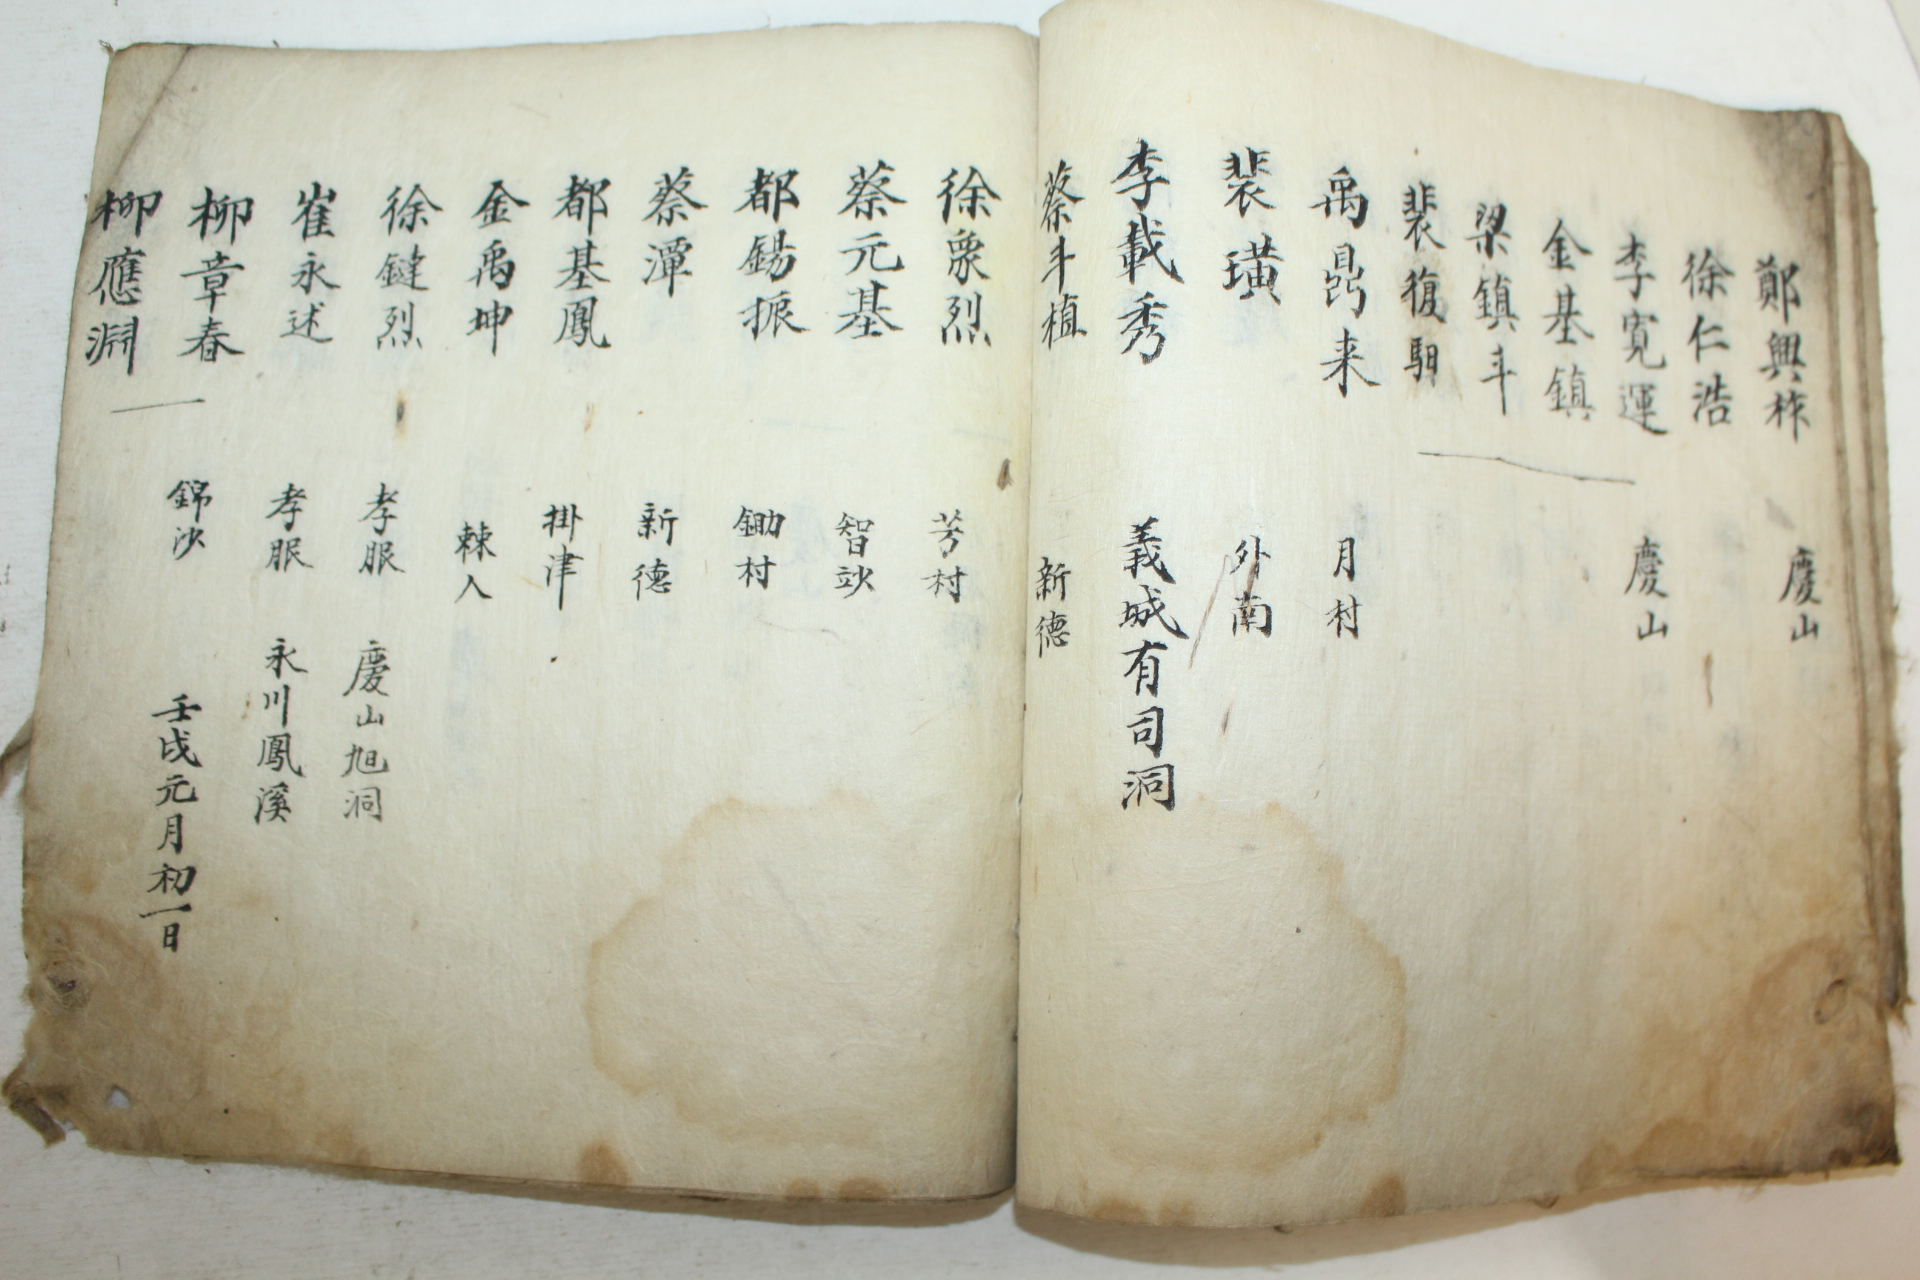 鄭興柞 慶山
徐仁浩
李寬運 慶山
金基鎮
梁鎮斗
裴復馹
禹鼎来 月村
裴璜 外南
李載秀 義城有司洞
蔡斗植 新德
徐象烈 芳村
蔡元基 智
都錫振 鋤村
蔡潭 新德
都基鳳 掛津
金禹坤 棘人
徐鍵烈 孝服 慶山旭洞
崔永述 孝服 永川鳳溪
柳章春 錦沙 壬戌元月初一日
柳應淵